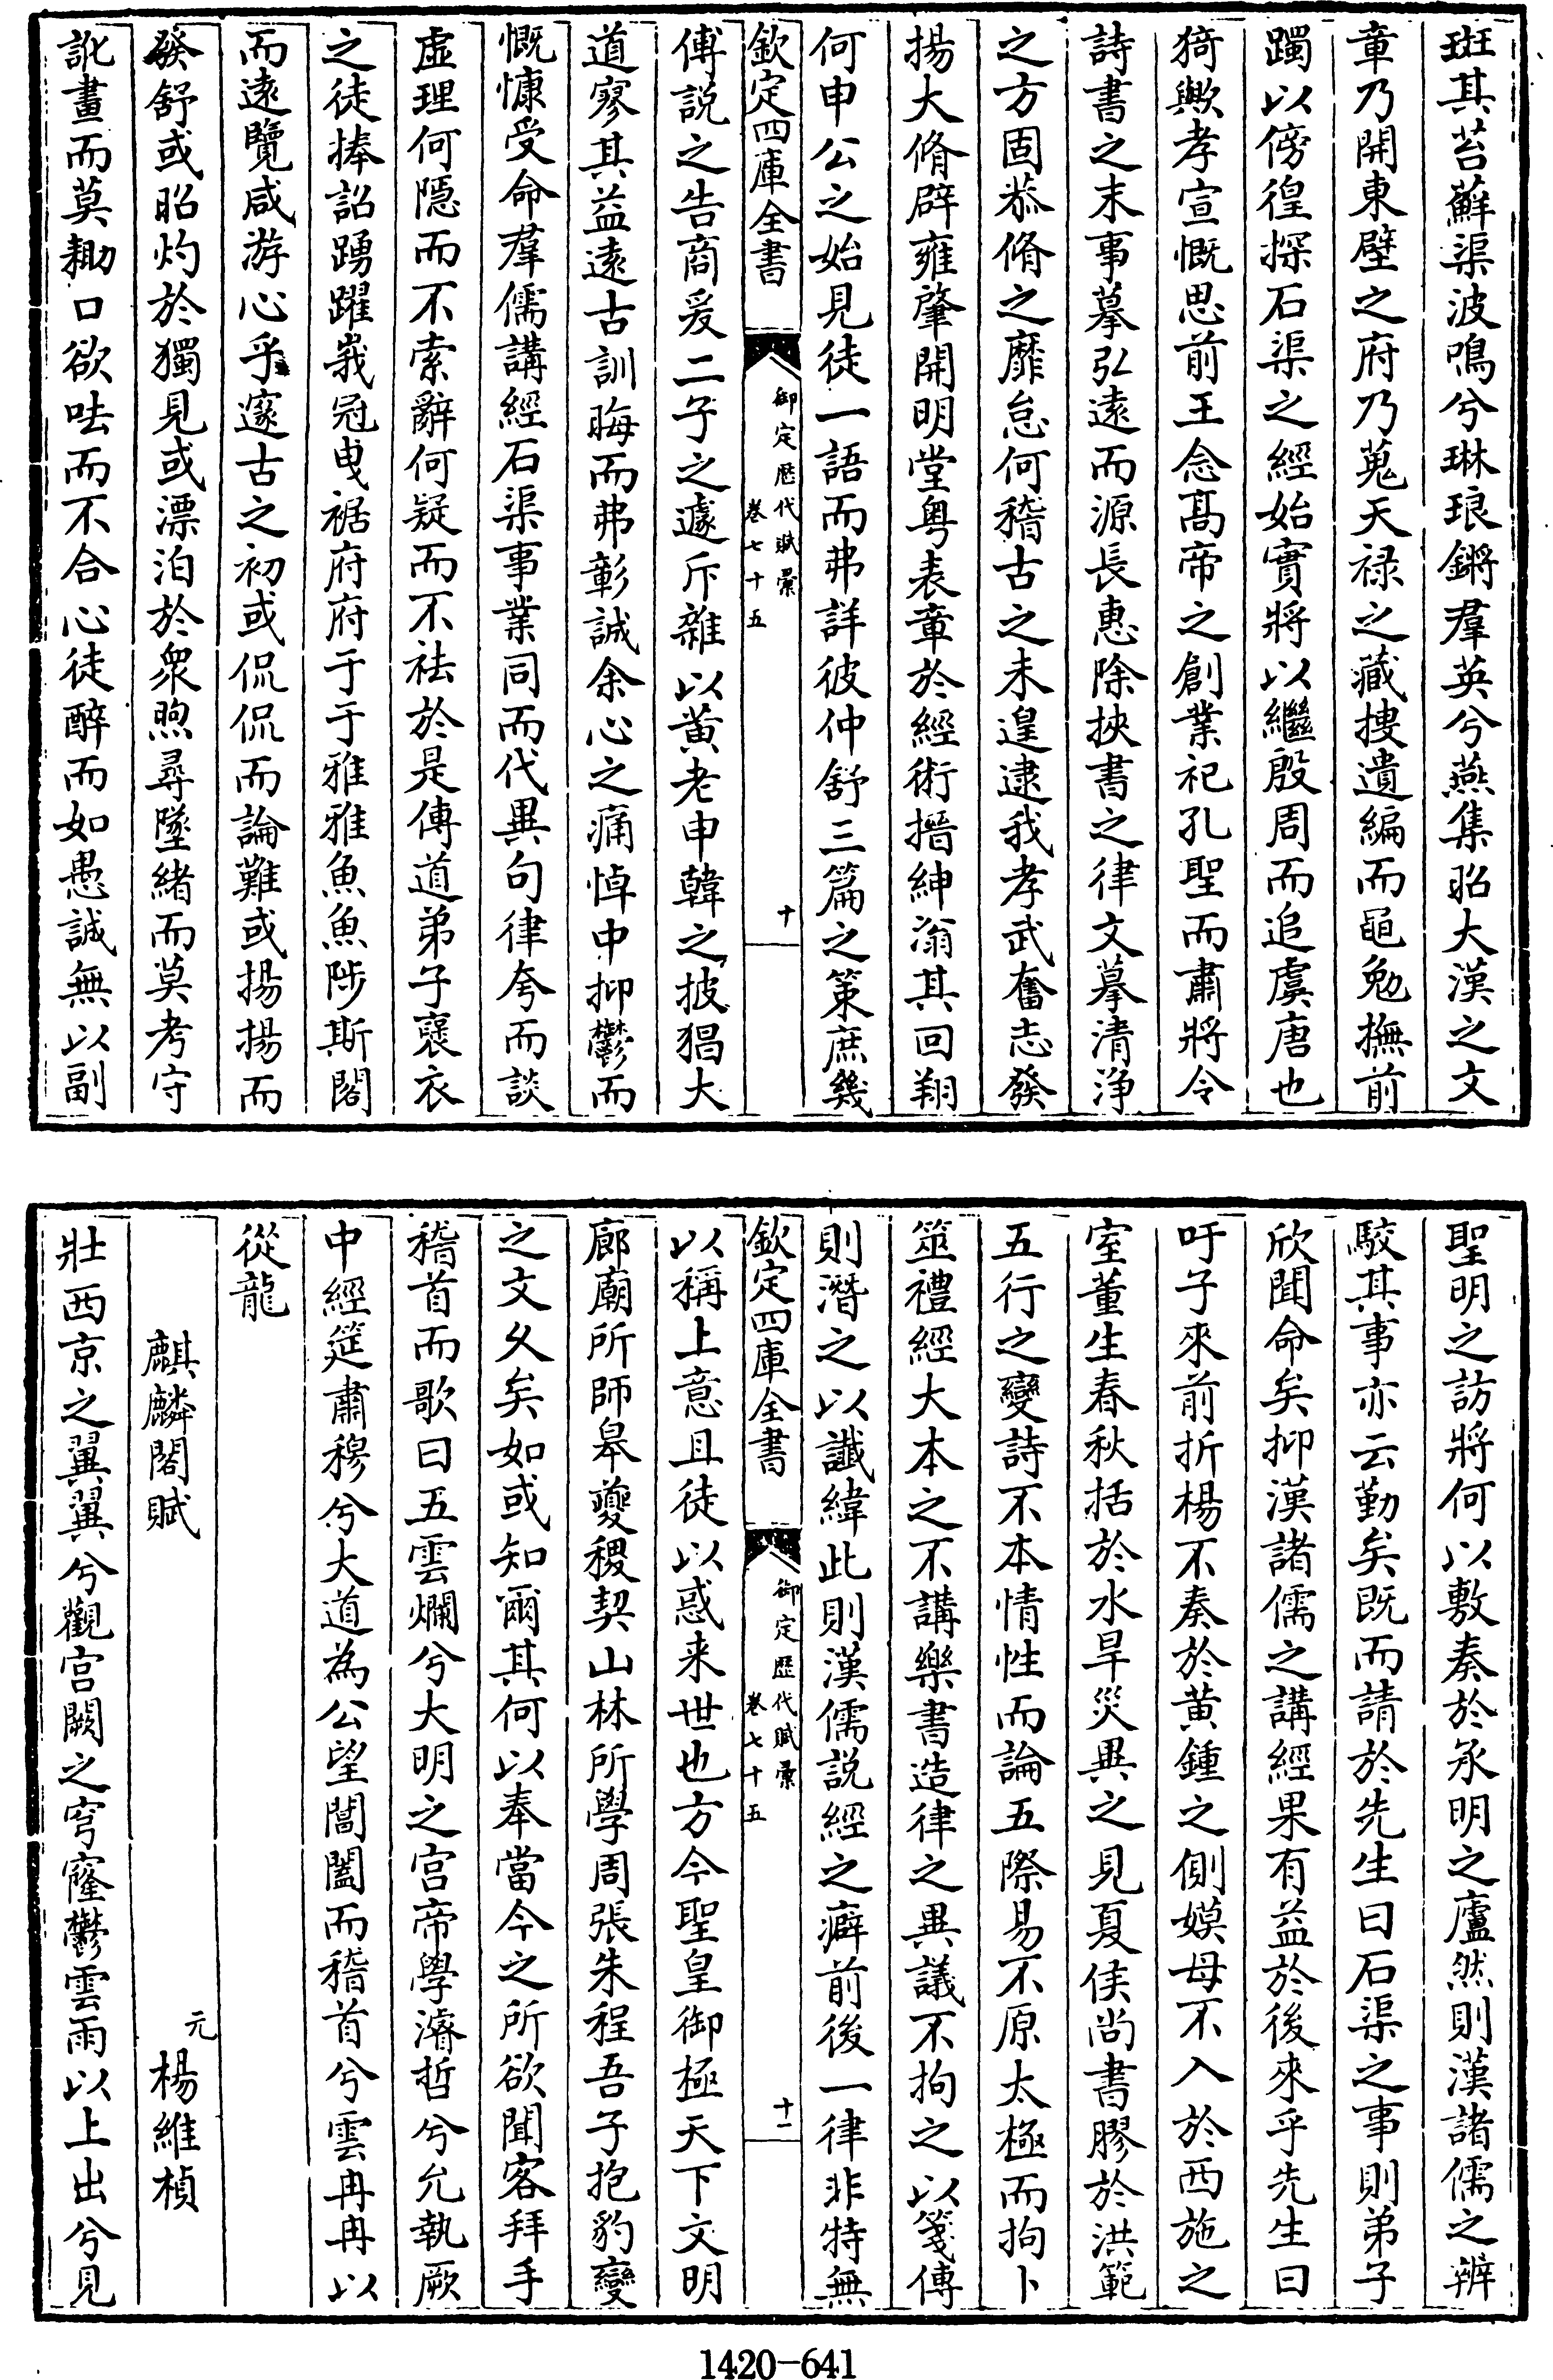 斑其苔蘚渠波鳴兮琳琅鏘羣英兮燕集昭大漢之文
章乃開東壁之府乃蒐天禄之藏搜遺編而黽勉撫前
躅以傍徨探石渠之經始實將以繼殷周而追虞唐也
猗歟孝宣慨思前王念髙帝之創業祀孔聖而肅將令
詩書之末事摹弘遠而源長惠除挾書之律文摹清浄
之方固恭脩之靡怠何稽古之未遑逮我孝武奮志發
揚大脩辟雍肇開明堂粤表章於經術搢紳滃其回翔
何申公之始見徒一語而弗詳彼仲舒三篇之策庶幾
欽定四庫全書
御定歴代賦彙
卷七十五
十
傅説之告商爰二子之遽斥雜以黄老申韓之披猖大
道寥其益遠古訓晦而弗彰誠余心之痛悼中抑鬱而
慨慷受命羣儒講經石渠事業同而代異句律夸而談
虚理何隱而不索辭何疑而不袪於是傳道弟子襃衣
之徒捧詔踴躍峩冠曳裾府府于于雅雅魚魚陟斯閣
而遠覽咸游心乎邃古之初或侃侃而論難或揚揚而
發舒或昭灼於獨見或漂泊於衆喣尋墜緒而莫考守
訛畫而莫耡口欲呿而不合心徒醉而如愚誠無以副
聖明之訪將何以敷奏於承明之廬然則漢諸儒之辨
駮其事亦云勤矣既而請於先生曰石渠之事則弟子
欣聞命矣抑漢諸儒之講經果有益於後來乎先生曰
吁子來前折楊不奏於黄鍾之側嫫母不入於西施之
室董生春秋括於水旱災異之見夏侯尚書膠於洪範
五行之變詩不本情性而論五際易不原太極而拘卜
筮禮經大本之不講樂書造律之異議不拘之以箋傳
則潛之以䜟緯此則漢儒説經之癖前後一律非特無
欽定四庫全書
御定歴代賦彙
卷七十五
十一
以稱上意且徒以惑来世也方今聖皇御極天下文明
廊廟所師皋夔稷契山林所學周張朱程吾子抱豹變
之文久矣如或知爾其何以奉當今之所欲聞客拜手
稽首而歌曰五雲爛兮大明之宫帝學濬哲兮允執厥
中經筵肅穆兮大道為公望閶闔而稽首兮雲冉冉以
從龍
麒麟閣賦
元楊維楨
壯西京之翼翼兮觀宫闕之穹窿鬱雲雨以上出兮見
1420-641